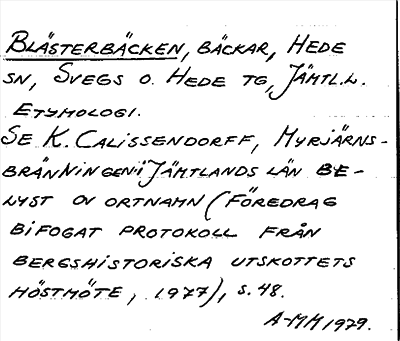 BLÄSTERBÄCKEN, BÄCKAR, HEDE
SN, SVEGS O. HEDE TG, JÄMTL.L.
ETYMOLOGI.
SE K. CALISSENDORFF, MYRJÄRNS-
BRÄNNINGEN I JÄMTLANDS LÄN BE-
LYST OV ORTNAMN (FÖREDRAG
BIFOGAT PROTOKOLL FRÅN
BERGSHISTORISKA UTSKOTTETS
HÖSTMÖTE, 1977), S. 48.
A-MM 1979.